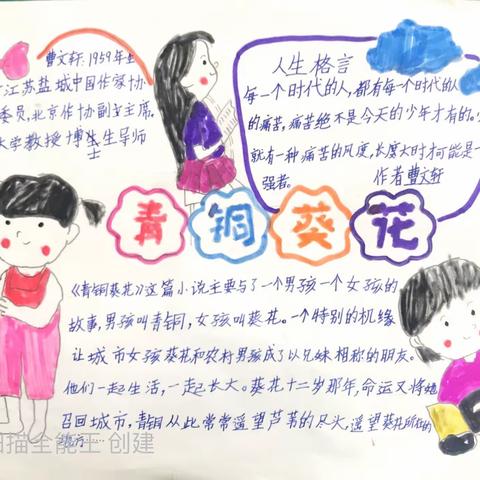 曹文轩.1959年生
江苏盐城中国作家协
委员,北京作协副主席.
大学教授博士生导师
人生格言
每一个时代的人,都有每一个时代的人
的痛苦,痛苦绝不是今天的少年才有的。少
就有一种痛苦的风度,长度大时才可能是一
强者。 作者曹文轩
青铜葵花
《青铜葵花》这篇小说主要写了一个男孩一个女孩的
故事,男孩叫青铜,女孩叫葵花。一个特别的机缘
让城市女孩葵花和农村男孩成了以兄妹相称的朋友。
他们一起生活,一起长大。葵花十二岁那年,命运又将她
召回城市,青铜从此常常遥望芦苇的尽头,遥望葵花所在的
地方……
扫描全能王 创建